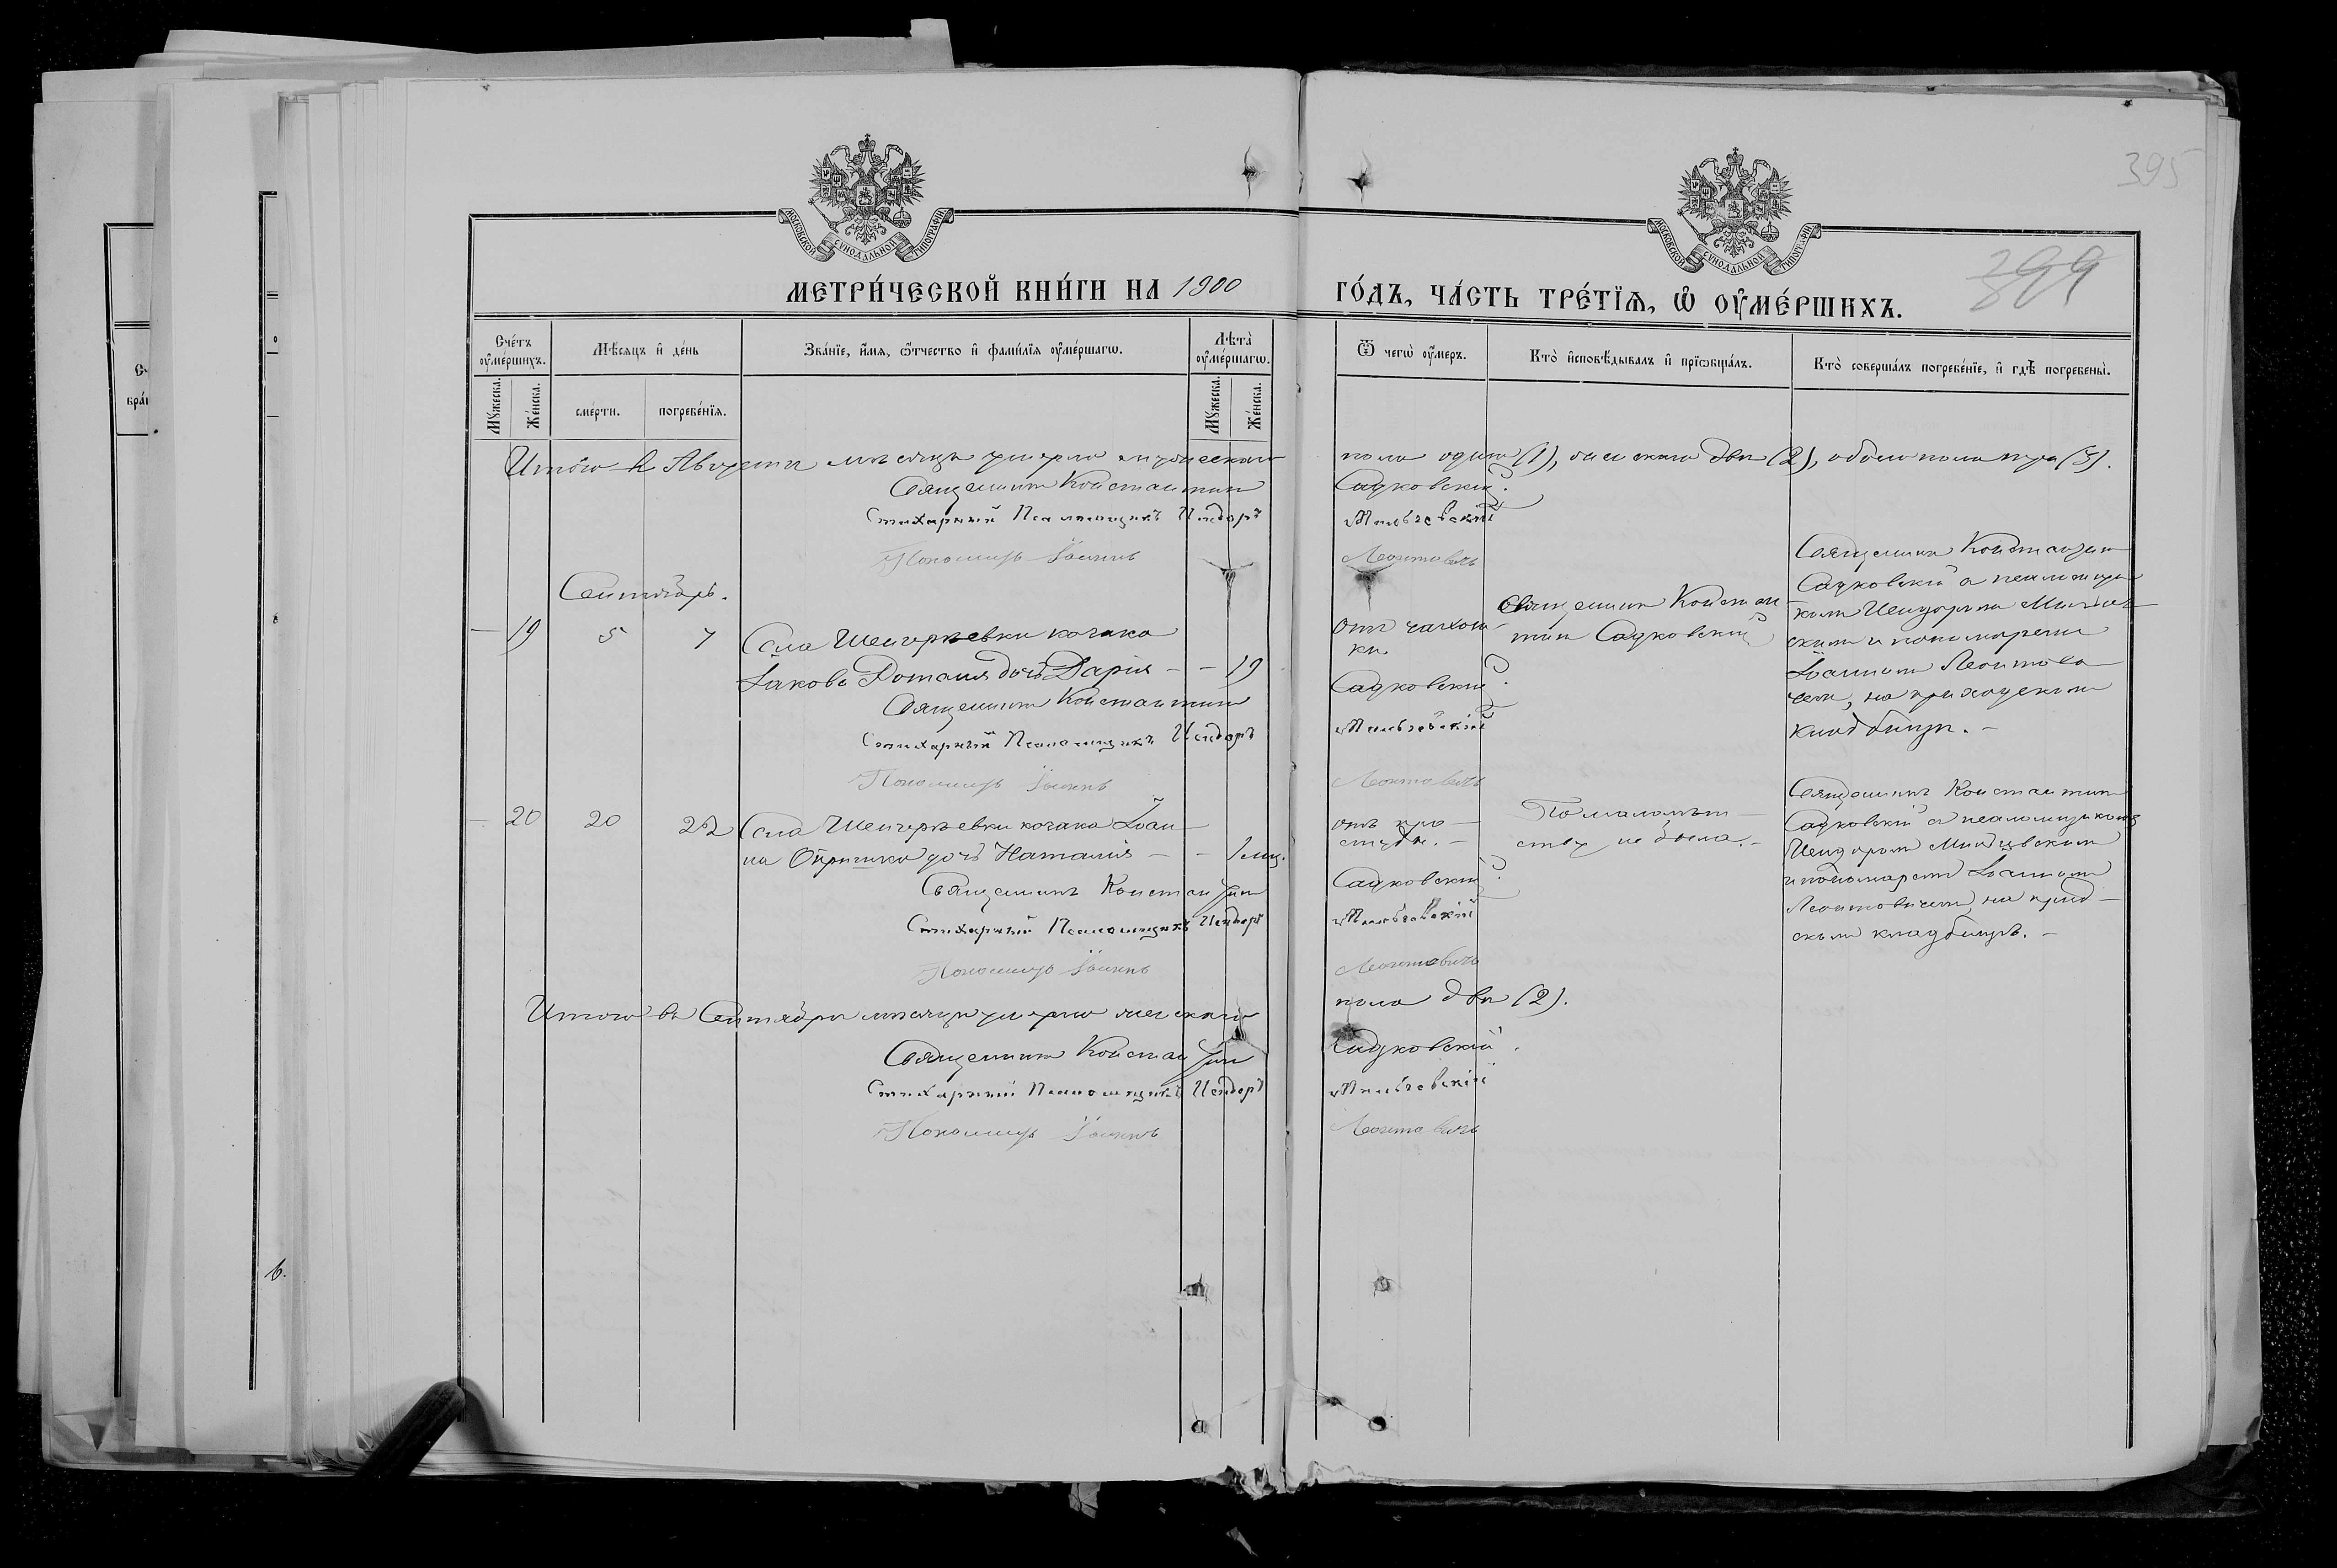 395
399
МОСКОВСКОЙ СУНОДАЛЬНОЙ ТИПОГРАФІИ
МОСКОВСКОЙ СУНОДАЛЬНОЙ ТИПОГРАФІИ
МЕТРИ́ЧЕСКОЙ КНИ́ГИ НА 1900 ГО́ДЪ, ЧА́СТЬ ТРЕ́ТЇѦ, Ѡ ОУ҆МЕ́РШИХЪ.
Сче́тъ оу҆ме́ршихъ.
Мꙋ́жеска.
Же́нска.
Мѣ́сяцъ и҆ де́нь
сме́рти.
погребе́нїѧ.
Зва́нїе, и҆́мѧ, ѻ҆́тчество и҆ фами́лїѧ оу҆ме́ршагѡ.
Лѣ́та оу҆ме́ршагѡ.
Мꙋ́жеска.
Же́нска.
Ѿ чегѡ̀ оу҆́меръ.
Кто̀ и҆сповѣ́дывалъ и҆ прїѡбща́лъ.
Кто̀ соверша́лъ погребе́нїе, и҆ гдѣ̀ погребены̀.
Итого въ Августѣ мѣсяцѣ умерло мужескаго пола одинъ (1), женскаго двѣ (2), обоего пола три (3).
Священникъ Константинъ Садковскій.
Стихарный Псаломщикъ Исидоръ
Пономарь Іоаннъ Леонтовичъ
Сентябрь.
— 19 5 7
Села Шенгерѣевки козака
Іакова дочь Дарія — — 19
отъ чахот-
ки.
Священникъ Констан-
тинъ Садковскій
Священникъ Константинъ
Садковскій съ псаломщи-
комъ Исидоромъ
скимъ и пономаремъ
Іоанномъ Леонтови-
чемъ, на приходскомъ
кладбищѣ. —
Священникъ Константинъ Садковскій.
Стихарный Псаломщикъ Исидоръ
Пономарь Іоаннъ Леонтовичъ
— 20 20 22
Села Шенгерѣевки козака Іоан-
на дочь Наталія — — 1 мѣс.
отъ про-
студы. —
По малолѣт-
ству не была. —
Священникъ Константинъ
Садковскій съ псаломщикомъ
Исидоромъ
и пономаремъ Іоанномъ
Леонтовичемъ, на приход-
скомъ кладбищѣ. —
Священникъ Константинъ Садковскій.
Стихарный Псаломщикъ Исидоръ
Пономарь Іоаннъ Леонтовичъ
Итого въ Сентябрѣ мѣсяцѣ умерло женскаго пола двѣ (2).
Священникъ Константинъ Садковскій.
Стихарный Псаломщикъ Исидоръ
Пономарь Іоаннъ Леонтовичъ